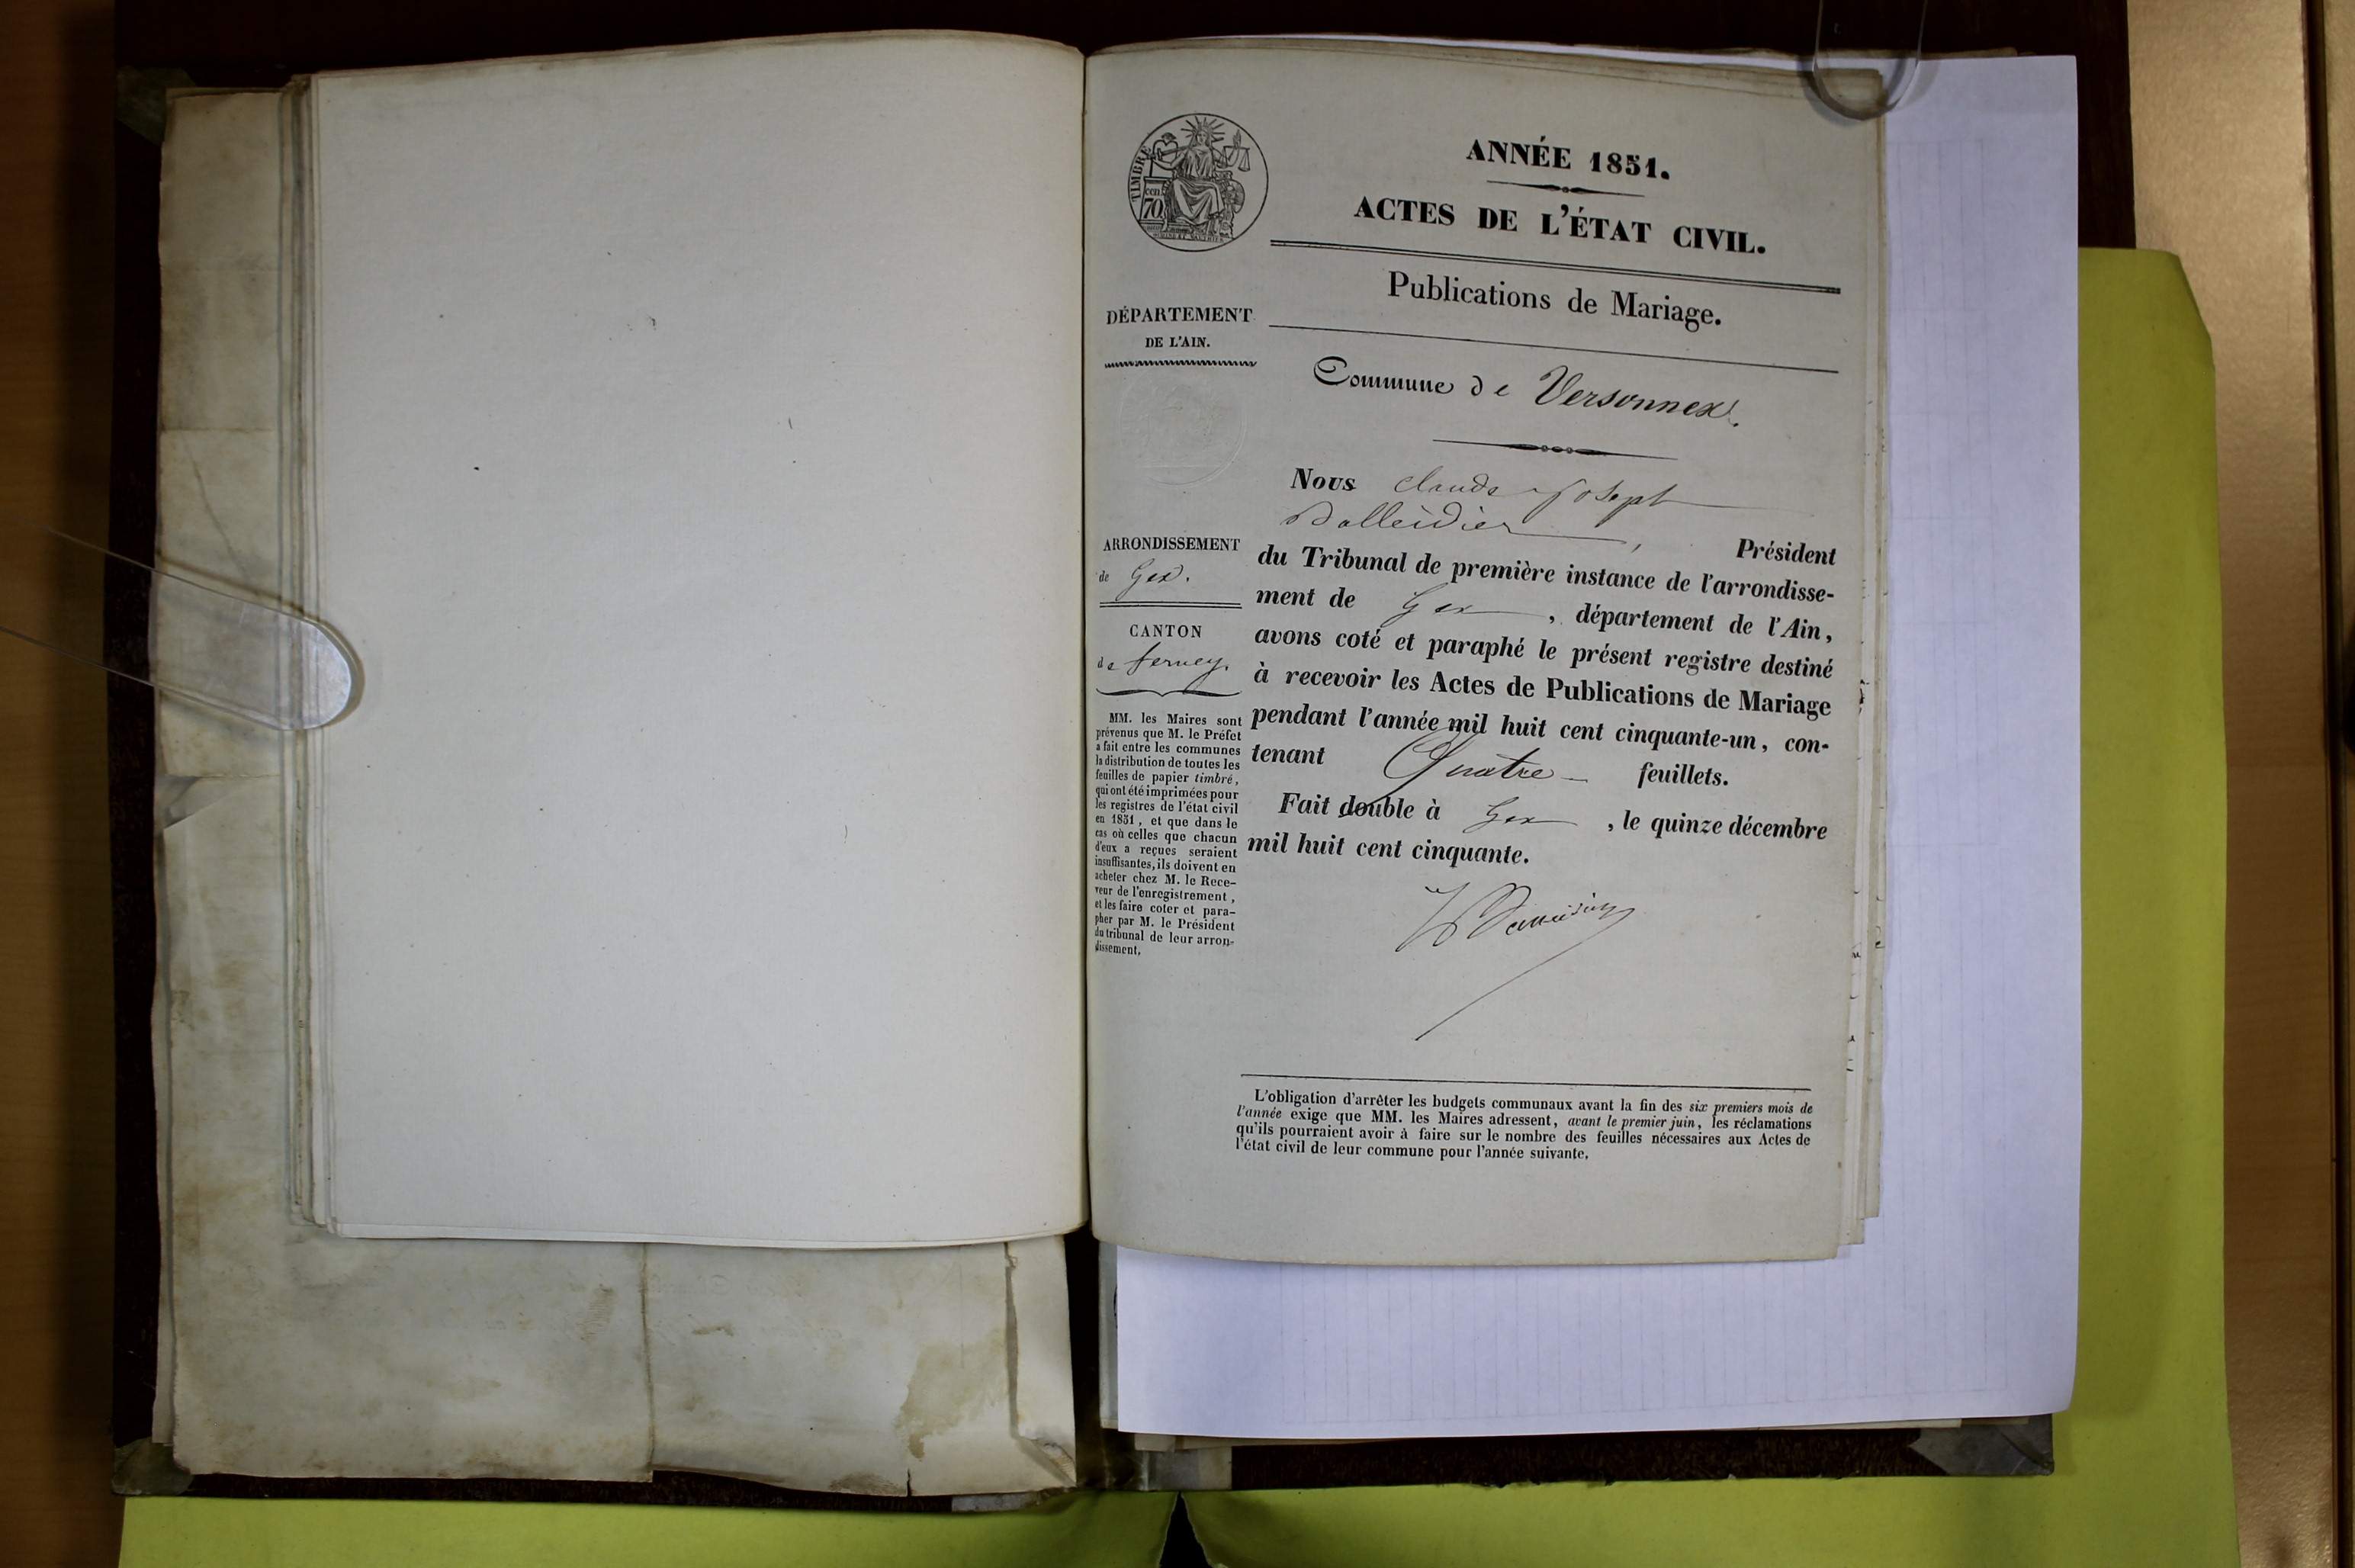 TIMBRE
cen
70
ANNÉE 1851.
ACTES DE L'ÉTAT CIVIL.
Publications de Mariage.
DÉPARTEMENT
DE L'AIN.
Commune de Versonnex.
Nous Claude Joseph
Balleidier, Président
du Tribunal de première instance de l'arrondisse-
ment de Gex, département de l'Ain,
avons coté et paraphé le présent registre destiné
à recevoir les Actes de Publications de Mariage
pendant l'année mil huit cent cinquante-un, con-
tenant Quatre feuillets.
Fait double à Gex, le quinze décembre
mil huit cent cinquante.
ARRONDISSEMENT
de Gex.
CANTON
de ferney.
MM. les Maires sont
prévenus que M. le Préfet
a fait entre les communes
la distribution de toutes les
feuilles de papier timbré,
qui ont été imprimées pour
les registres de l'état civil
en 1851, et que dans le
cas où celles que chacun
d'eux a reçues seraient
insuffisantes, ils doivent en
acheter chez M. le Rece-
veur de l'enregistrement,
et les faire coter et para-
pher par M. le Président
du tribunal de leur arron-
dissement,
L'obligation d'arrêter les budgets communaux avant la fin des six premiers mois de
l'année exige que MM. les Maires adressent, avant le premier juin, les réclamations
qu'ils pourraient avoir à faire sur le nombre des feuilles nécessaires aux Actes de
l'état civil de leur commune pour l'année suivante,